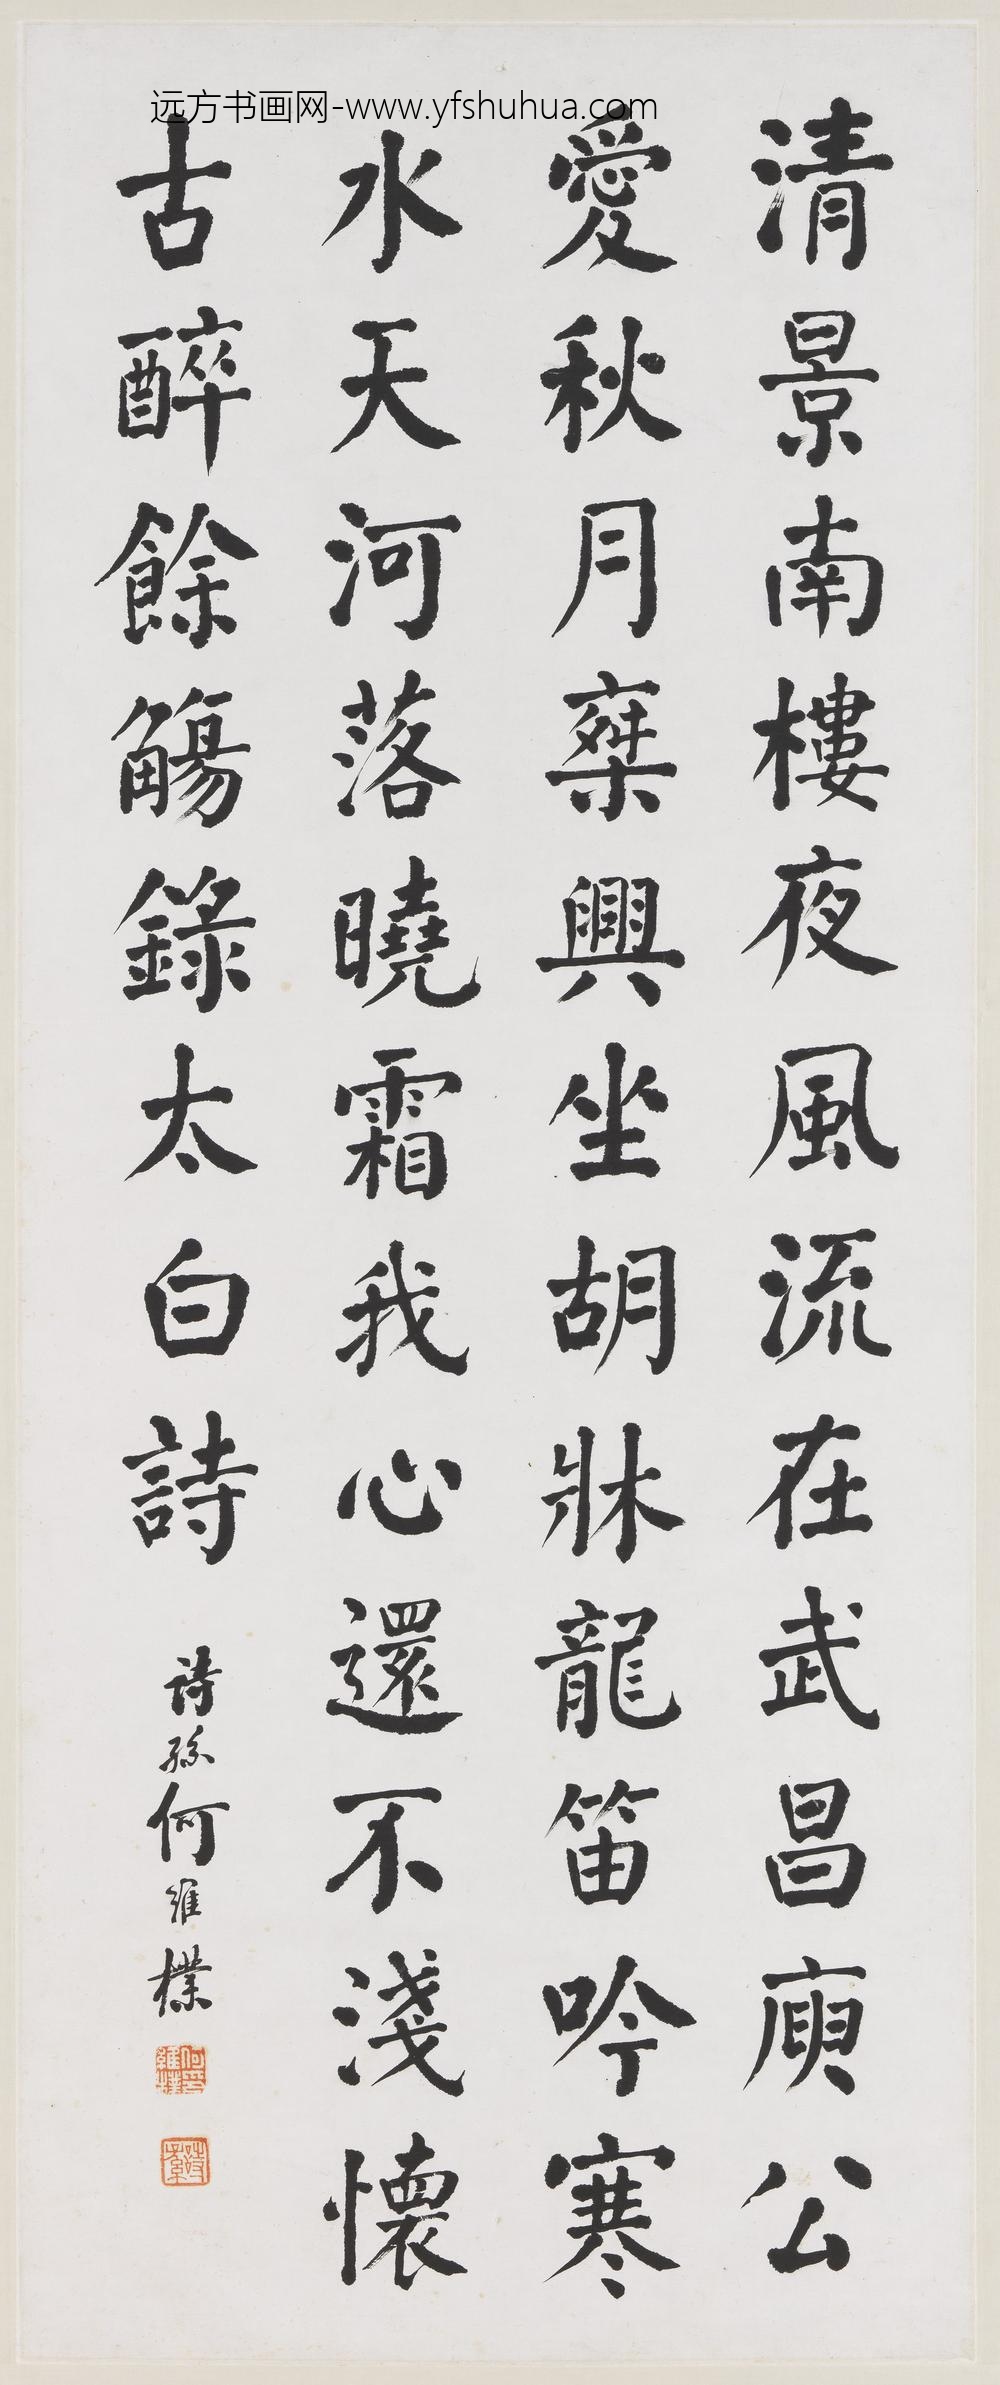 远方书画网-www.yfshuhua.com
清景南樓夜風流在武昌庾公
愛秋月椉興坐胡牀龍笛吟寒
水天河落曉霜我心還不淺懷
古醉餘觴錄太白詩
詩孫何維樸
何維樸印
詩孫